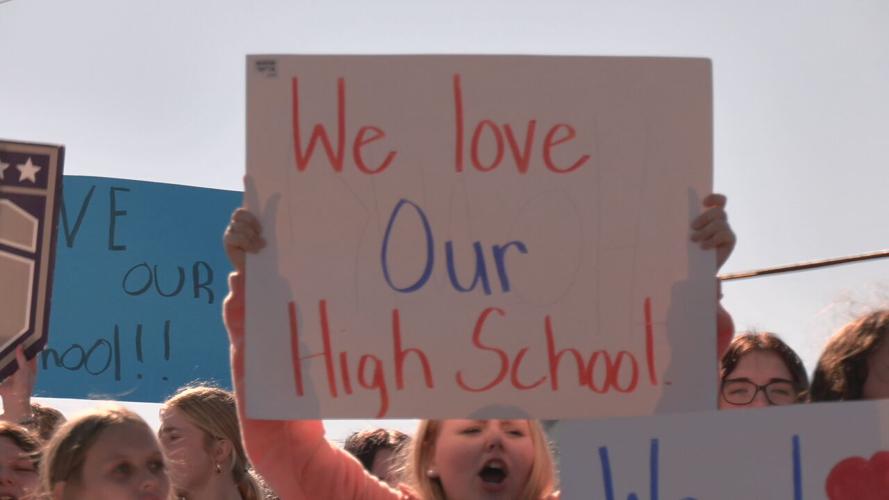 We love
Our
High School.
VE
OUR
hool!!
We l